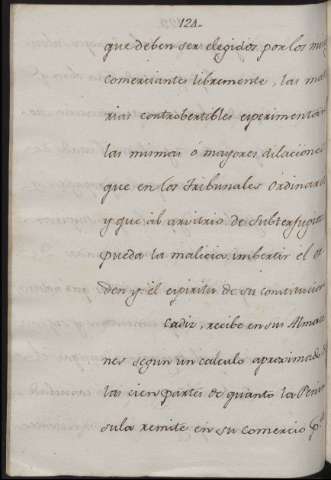 124.
que deben ser elegidos por los mis
comerciantes libremente, las mate
rias controbertibles esperimentan
las mismas ó mayores dilaciones
que en los Tribunales Ordinari
y que al arvitrio de subterfugios
pueda la malicia imbertir el or
den y el espiritu de su constitucion
Cadiz, recibe en sus Almace
nes segun un calculo aproximado de
las cien partes de quanto la Penin
sula remite en su comercio p.